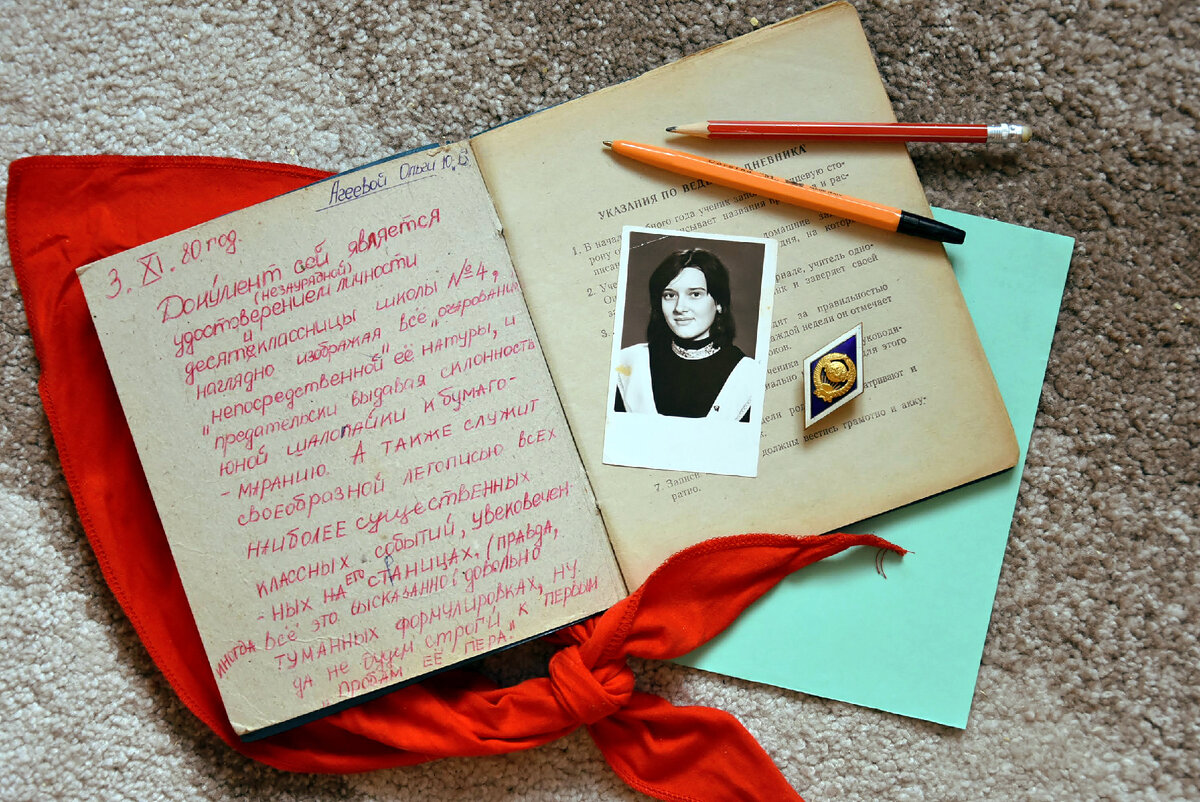 Агеевой Ольги 10 „В"
3. XI. 80 год.
Документ сей является
(незаурядной)
удостоверением личности
и
десятиклассницы школы № 4,
наглядно изображая всё „очарование
непосредственной" её натуры, и
"предательски выдавая склонность
юной шалопайки к бумаго-
-маранию. А также служит
своеобразной летописью всех
наиболее существенных
классных событий, увековечен-
-ных на его страницах. (правда,
иногда всё это высказанно довольно
туманных формулировках, ну
да не будем строги к первым
"пробам её пера."
УКАЗАНИЯ ПО ДНЕВНИКА
1. В нача бного года ученик запо лицевую сто-
рону писывает названия пр й и рас-
писан домашние за
дня, на котор
2. Уче рале, учитель одно-
к и заверяет своей
3. дит за правильностью
аждой недели он отмечает
оков.
ученика руководи-
иально для этого
еля род атривают и
должны вестись грамотно и акку-
7. Записи
ратно.